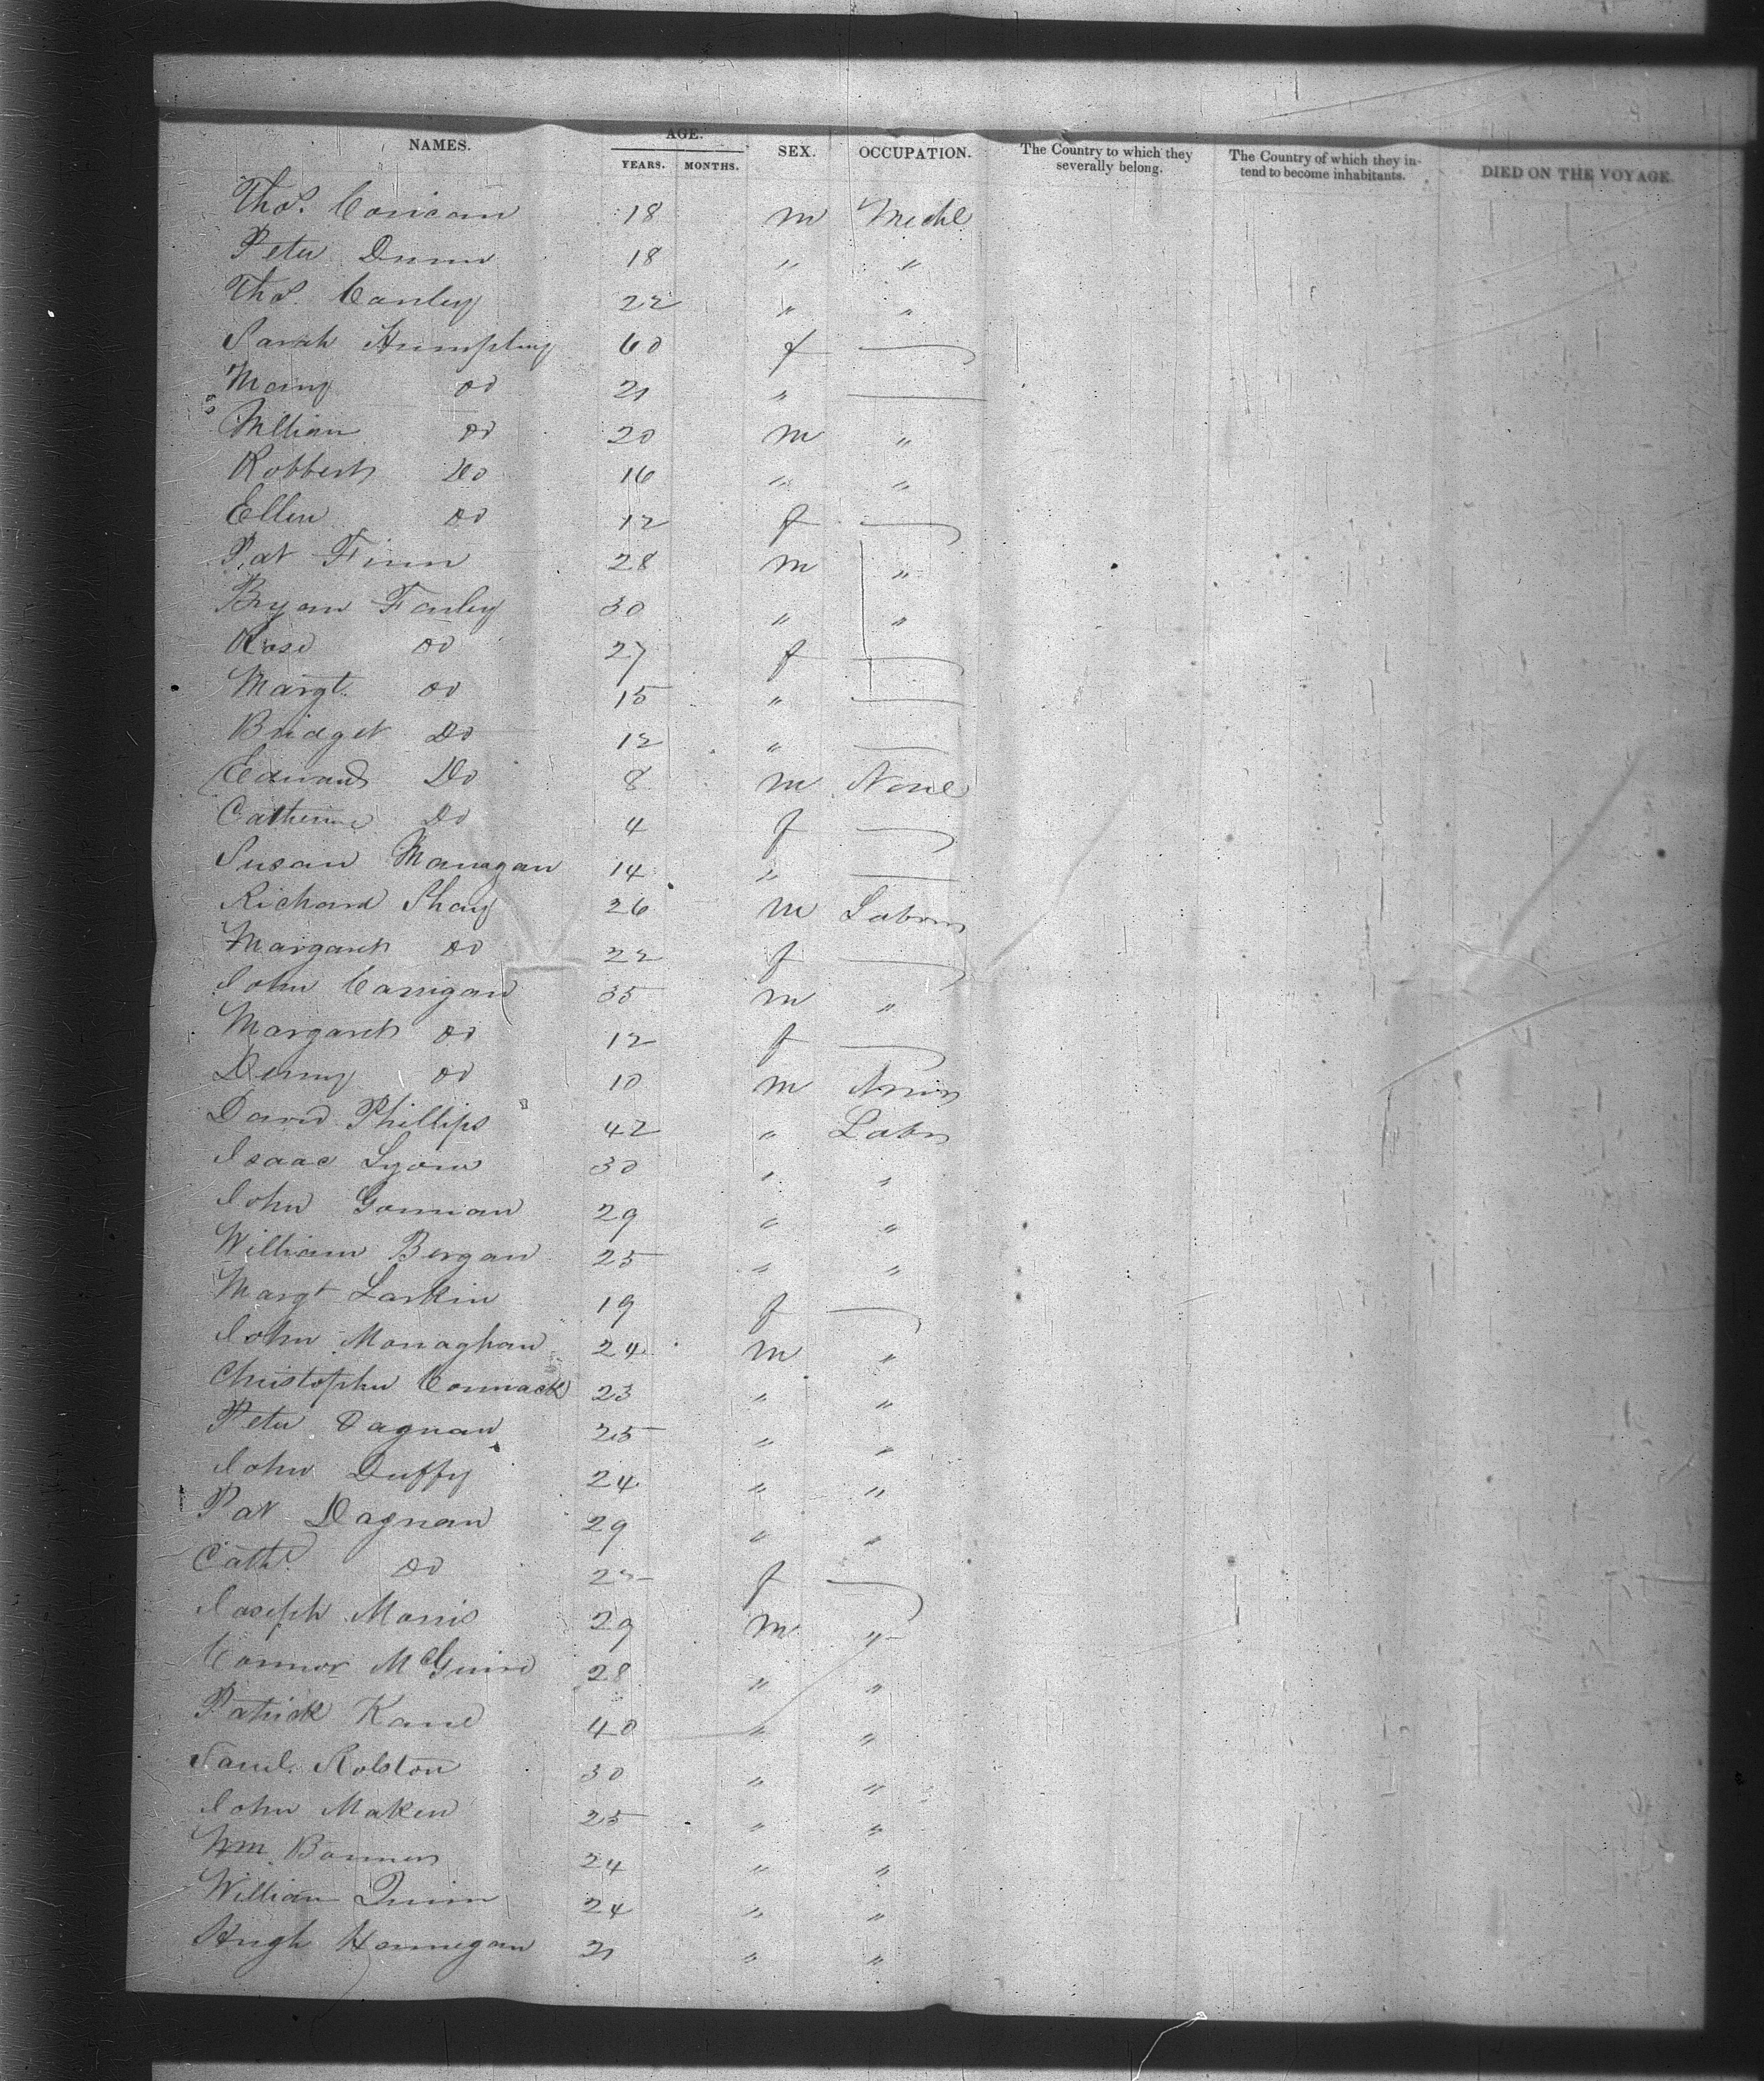 NAMES. AGE. YEARS. MONTHS. SEX. OCCUPATION. The Country to which they severally belong. The Country of which they intend to become inhabitants. DIED ON THE VOYAGE.
Thos. 18 m
Peter Dunn 18 " "
Thos. Conley 22 " "
Sarah 60 f —
Mary do 21 " —
William do 20 m "
Robbert Do 16 " "
Ellen do 12 f —
Pat Finn 28 m "
Bryan Farley 30 " "
Rose do 27 f —
Margt. do 15 " —
Bridget Do 12 " —
Edward Do 8 m None
Catherine Do 4 f —
Susan Managan 14 " —
Richard Shay 26 m Labour
Margaret do 22 f —
John Carrigan 35 m "
Margaret do 12 f —
Denny do 10 m
David Phillips 42 " Labr
Isaac Lyons 30 " "
John Gonnian 29 " "
William Bergan 25 " "
Margt Larkin 19 f —
John Monaghan 24 m "
Christopher Cormack 23 " "
Peter Dagnan 25 " "
John Duffy 24 " "
Pat Dagnan 29 " "
Cathe. do f —
Joseph Morris 29 m "
Connor McGuire 28 " "
Patrick Kane 40 " "
Saml. Rolston 30 " "
John Maken 25 " "
Wm. 24 " "
William Quinn 24 " "
Hugh Hannegan 21 " "